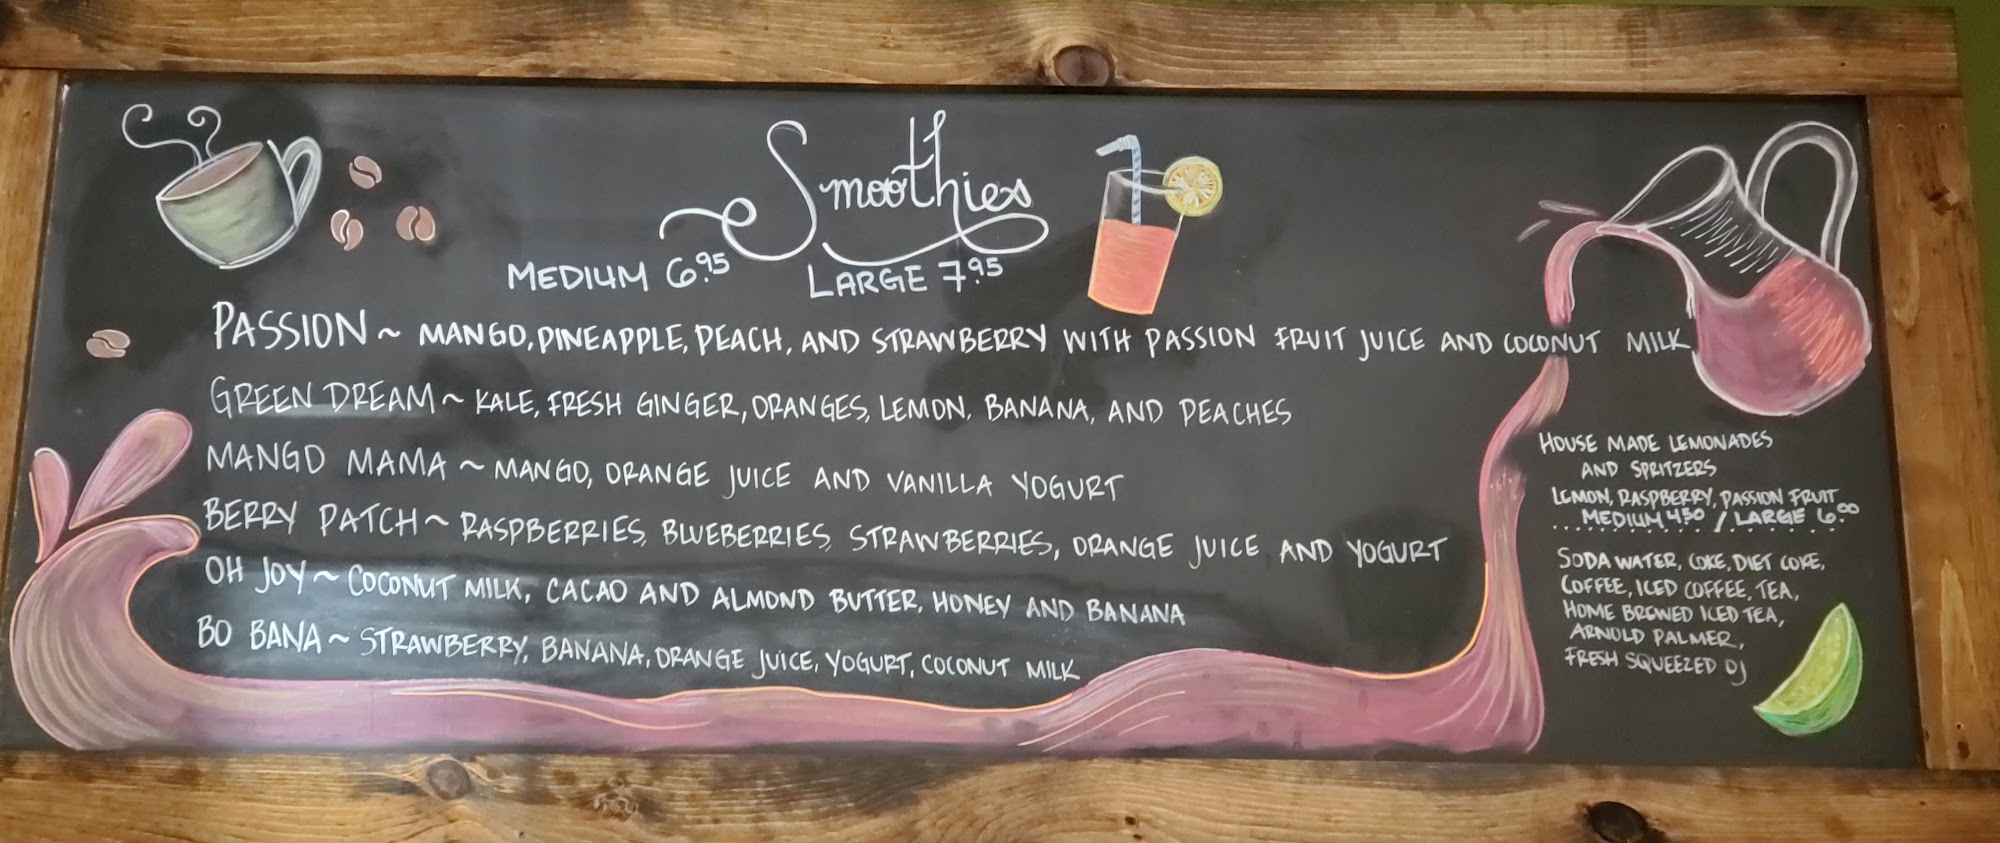 Smoothies
MEDIUM 6.95 LARGE 7.95
PASSION ~ MANGO, PINEAPPLE, PEACH, AND STRAWBERRY WITH PASSION FRUIT JUICE AND COCONUT MILK
GREEN DREAM ~ KALE, FRESH GINGER, ORANGES, LEMON, BANANA, AND PEACHES
MANGO MAMA ~ MANGO, ORANGE JUICE AND VANILLA YOGURT
BERRY PATCH ~ RASPBERRIES, BLUEBERRIES, STRAWBERRIES, ORANGE JUICE AND YOGURT
OH JOY ~ COCONUT MILK, CACAO AND ALMOND BUTTER, HONEY AND BANANA
BO BANA ~ STRAWBERRY, BANANA, ORANGE JUICE, YOGURT, COCONUT MILK
HOUSE MADE LEMONADES
AND SPRITZERS
LEMON, RASPBERRY, PASSION FRUIT
MEDIUM 4.50 / LARGE 6.00
SODA WATER, COKE, DIET COKE,
COFFEE, ICED COFFEE, TEA,
HOME BREWED ICED TEA,
ARNOLD PALMER,
FRESH SQUEEZED OJ